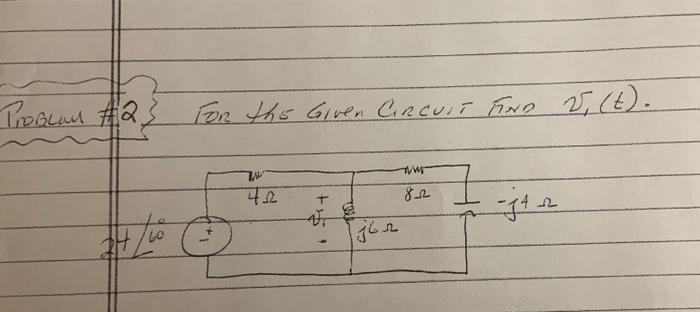 Problem #2} For the Given Circuit Find v₁(t).
4Ω 8Ω
+ v₁ - j6Ω -j4Ω
24/60° + -